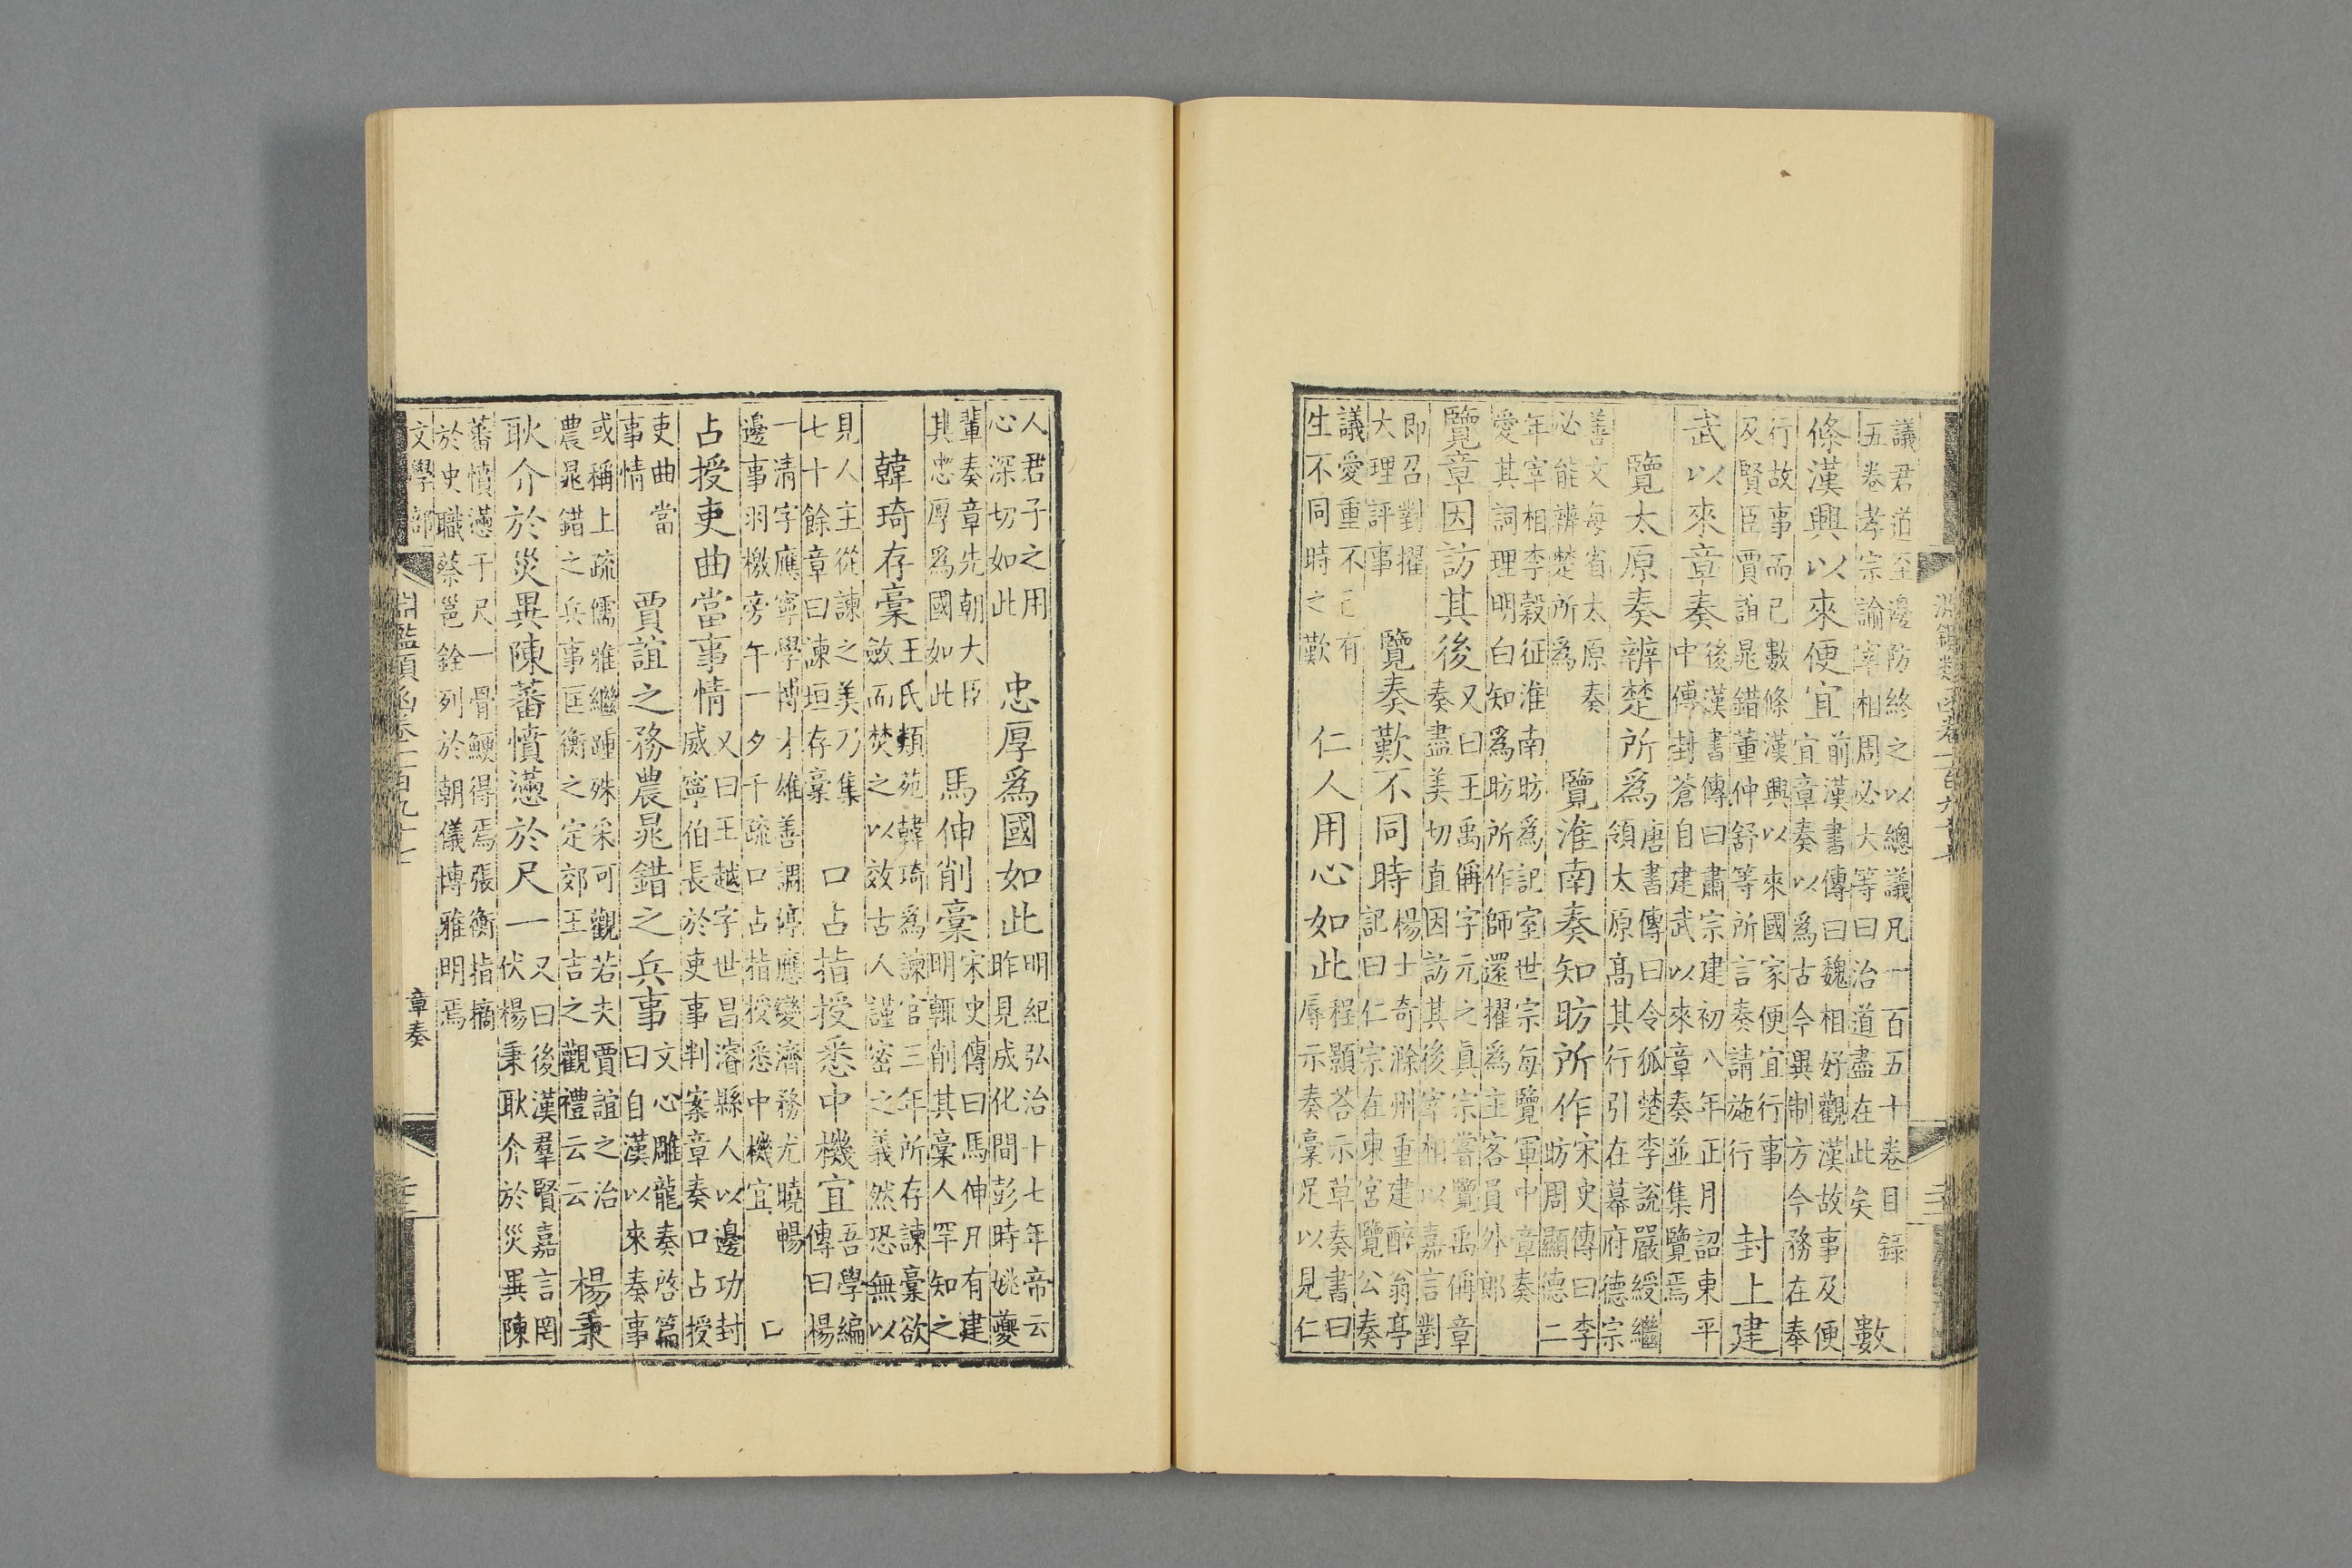 議君道至邊防終之以總議凡一百五十卷目錄
五卷孝宗諭宰相周必大等曰治道盡在此矣
數
條漢興以來便宜
前漢書傳曰魏相好觀漢故事及便
宜章奏以爲古今異制方今務在奉
行故事而已數條漢興以來國家便宜行事
及賢臣賈誼晁錯董仲舒等所言奏請施行
封上建
武以來章奏
後漢書傳曰肅宗建初八年正月詔東平
中傅封蒼自建武以來章奏並集覽焉
覽太原奏辨楚所爲
唐書傳曰令狐楚李說嚴綬繼
領太原髙其行引在幕府德宗
善文每省太原奏
必能辨楚所爲
覽淮南奏知昉所作
宋史傳曰李
昉周顯德二
年宰相李穀征淮南昉爲記室世宗每覽軍中章奏
愛其詞理明白知爲昉所作師還擢爲主客員外郎
覽章因訪其後
又曰王禹偁字元之眞宗嘗覽禹偁章
奏盡美切直因訪其後宰相以嘉言對
即召對擢
大理評事
覽奏歎不同時
楊士奇滁州重建醉翁亭
記曰仁宗在東宮覽公奏
議愛重不已有
生不同時之歎
仁人用心如此
程顥荅示草奏書曰
辱示奏稾足以見仁
人君子之用
心深切如此
忠厚爲國如此
明紀弘治十七年帝云
昨見成化間彭時姚夔
輩奏章先朝大臣
其忠厚爲國如此
馬伸削稾
宋史傳曰馬伸凡有建
明輒削其稾人罕知之
韓琦存稾
王氏類苑韓琦爲諫官三年所存諫稾欲
斂而焚之以效古人謹密之義然恐無以
見人主從諫之美乃集
七十餘章曰諫垣存稾
口占指授悉中機宜
吾學編
傳曰楊
一清字應寧學博才雄善謂停應變濟務尤曉暢
邊事羽檄旁午一夕千疏口占指授悉中機宜
口
占授吏曲當事情
又曰王越字世昌濬縣人以邊功封
威寧伯長於吏事判案章奏口占授
吏曲當
事情
賈誼之務農晁錯之兵事
文心雕龍奏啓篇
曰自漢以來奏事
或稱上疏儒雅繼踵殊采可觀若夫賈誼之治
農晁錯之兵事匡衡之定郊王吉之觀禮云云
楊秉
耿介於災異陳蕃憤懣於尺一
又曰後漢羣賢嘉言罔
伏楊秉耿介於災異陳
蕃憤懣于尺一骨鯁得焉張衡指摘
於史職蔡邕銓列於朝儀博雅明焉
文學部
淵鑑類函卷一百九十七
章奏